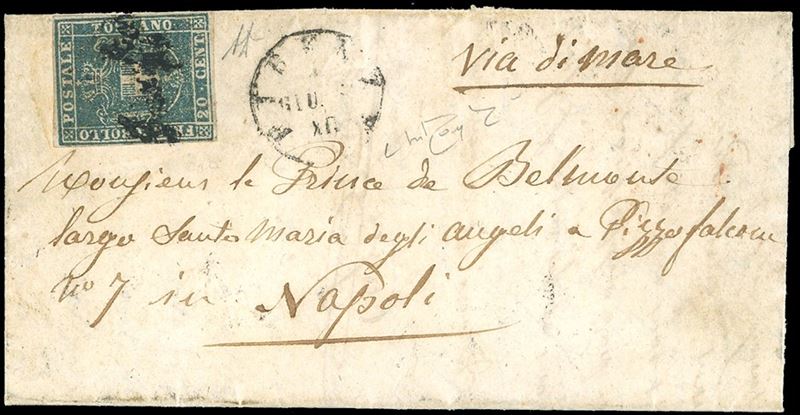 FRANCOBOLLO
POSTALE
TOSCANO
20 CENT
FIRENZE
GIU.
via di mare
Monsieur le Prince de Belmonte
largo Santo Maria degli angeli a Pizzofalcone
no 7 in Napoli